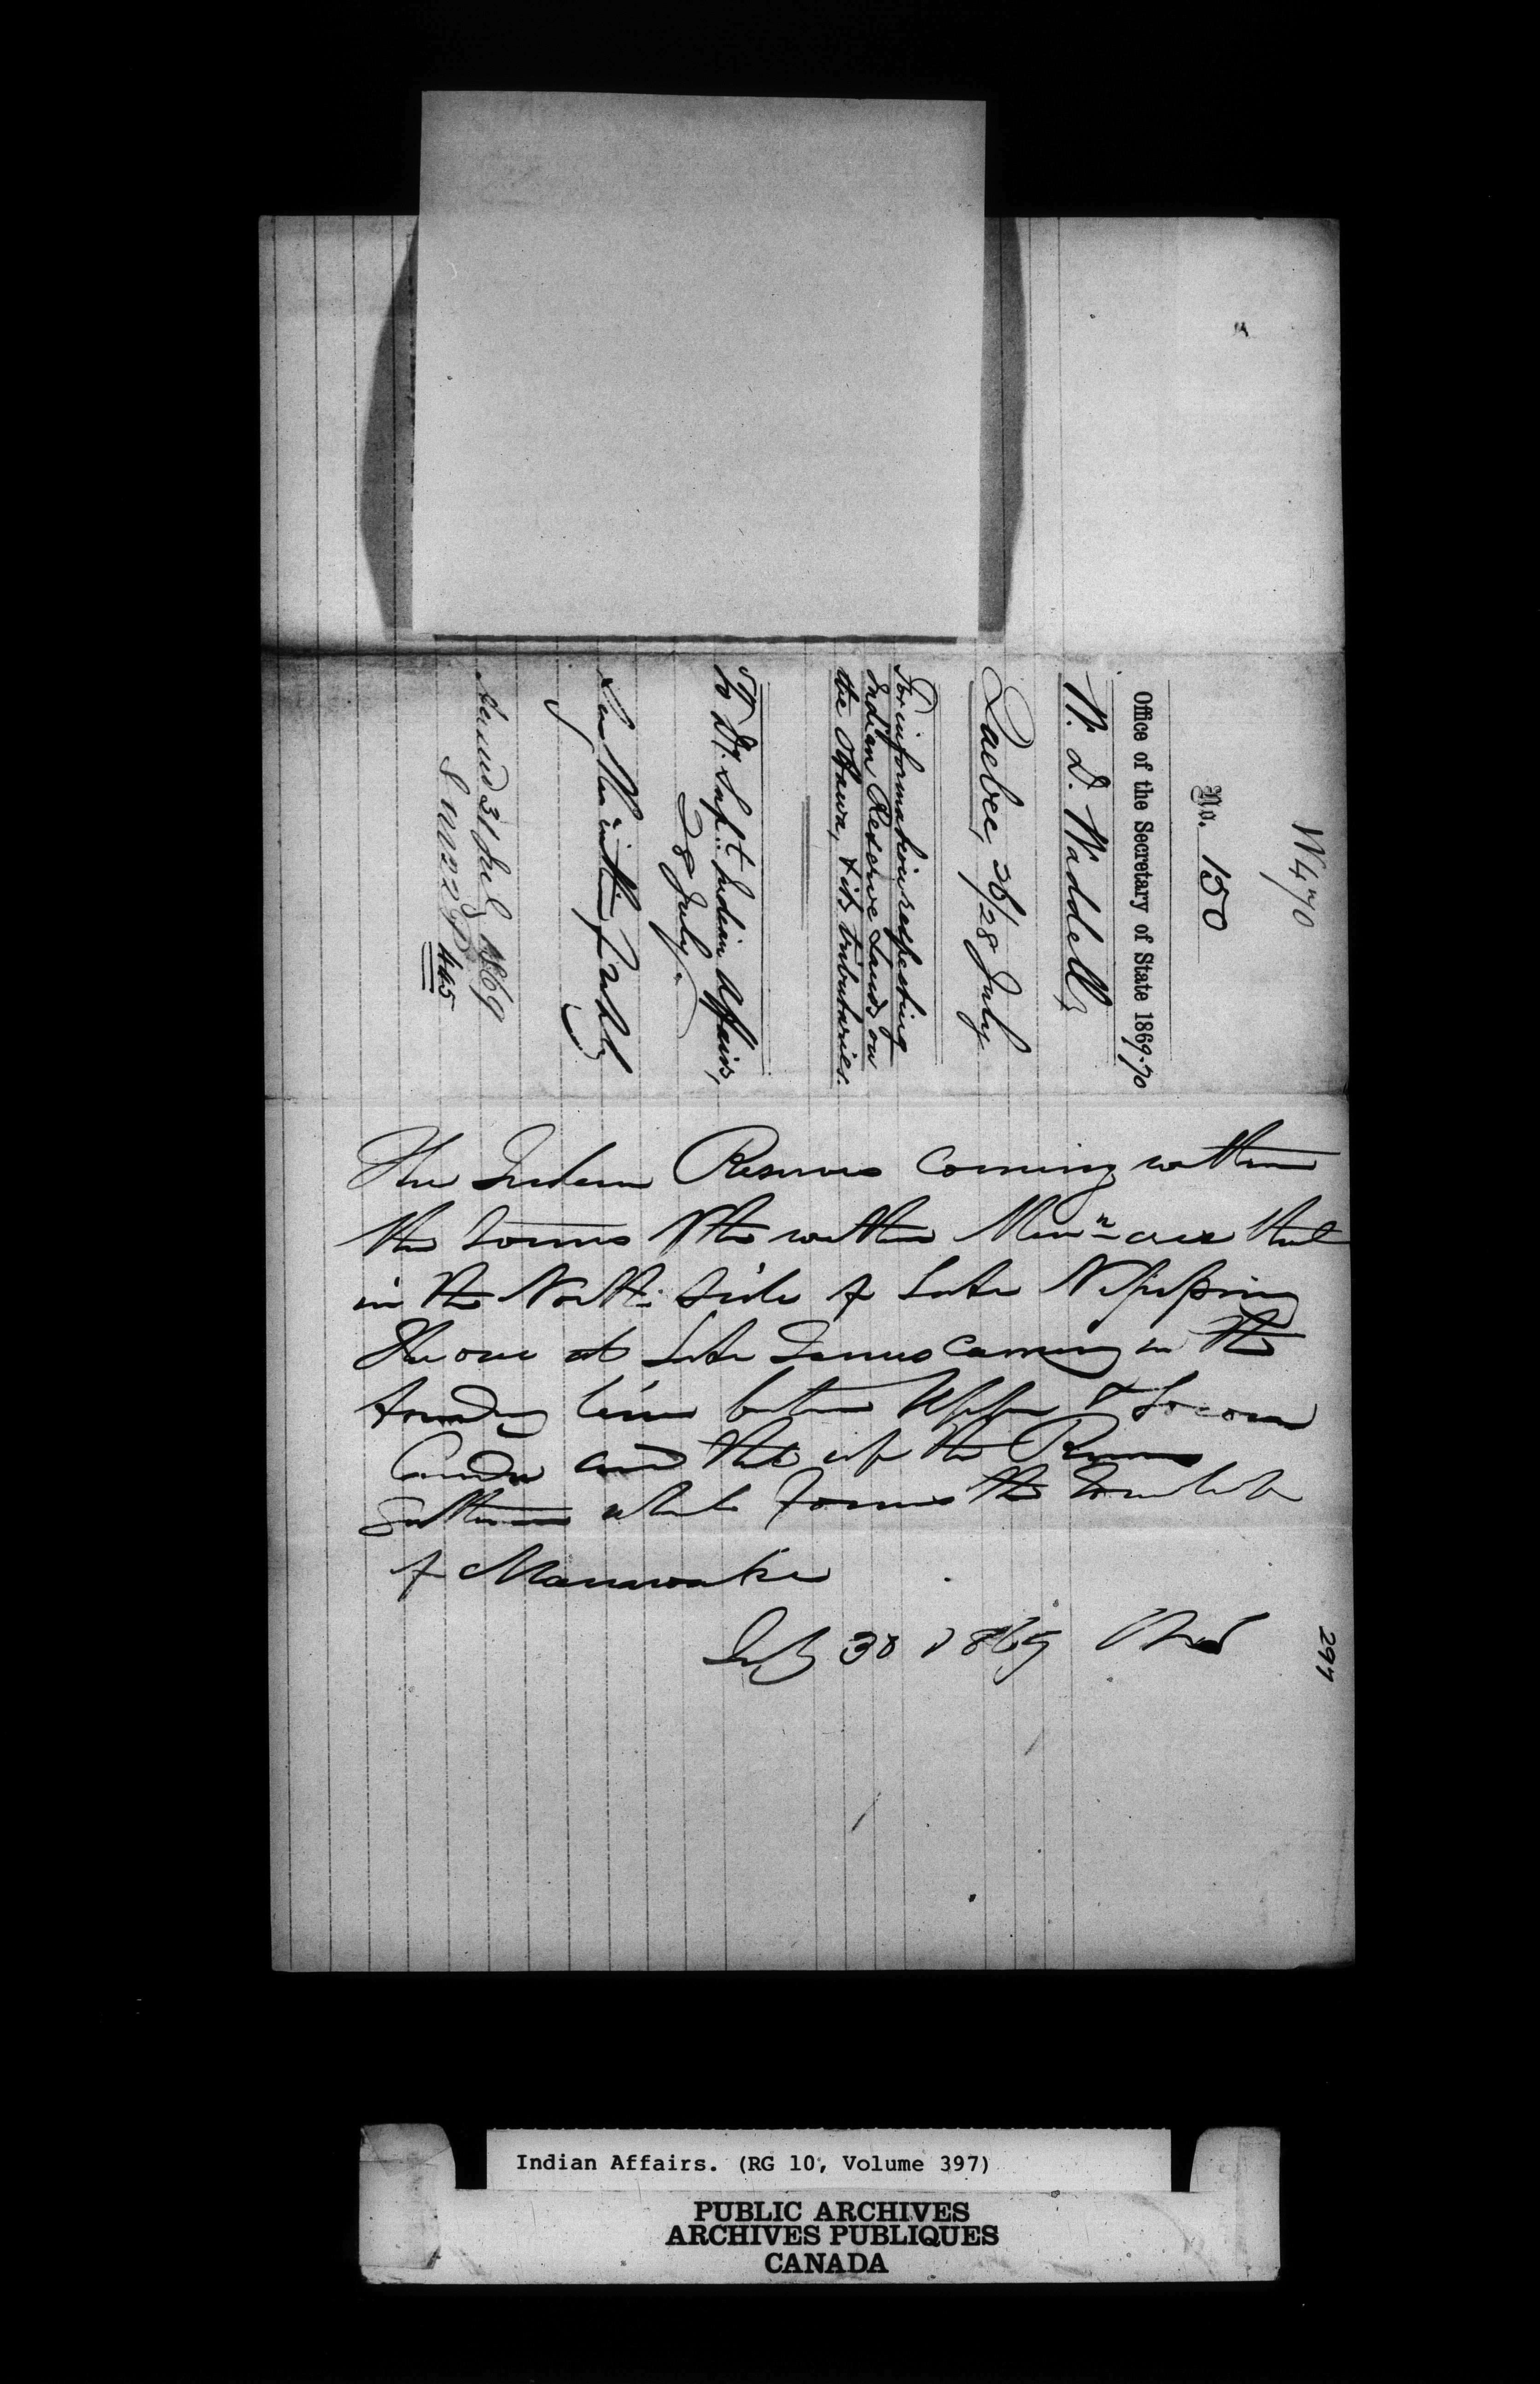 W470
No. 150
Office of the Secretary of State 1869-70
W. D. Waddell,
Quebec, 26/28 July
For information respecting
Indian Reserve Lands on
the Ottawa, & its tributaries.
To Dy. Supt. Indian Affairs,
28 July.
31 July 1869
445
The Indian Reserves coming within
the terms of the within Memn are that
in the North side of Lake Nipissing
the one at Lake Temiscaming in the
line between Upper & Lower
Canada and the
which forms the
of Maniwaki
July 30 1869
297
Indian Affairs. (RG 10, Volume 397)
PUBLIC ARCHIVES
ARCHIVES PUBLIQUES
CANADA